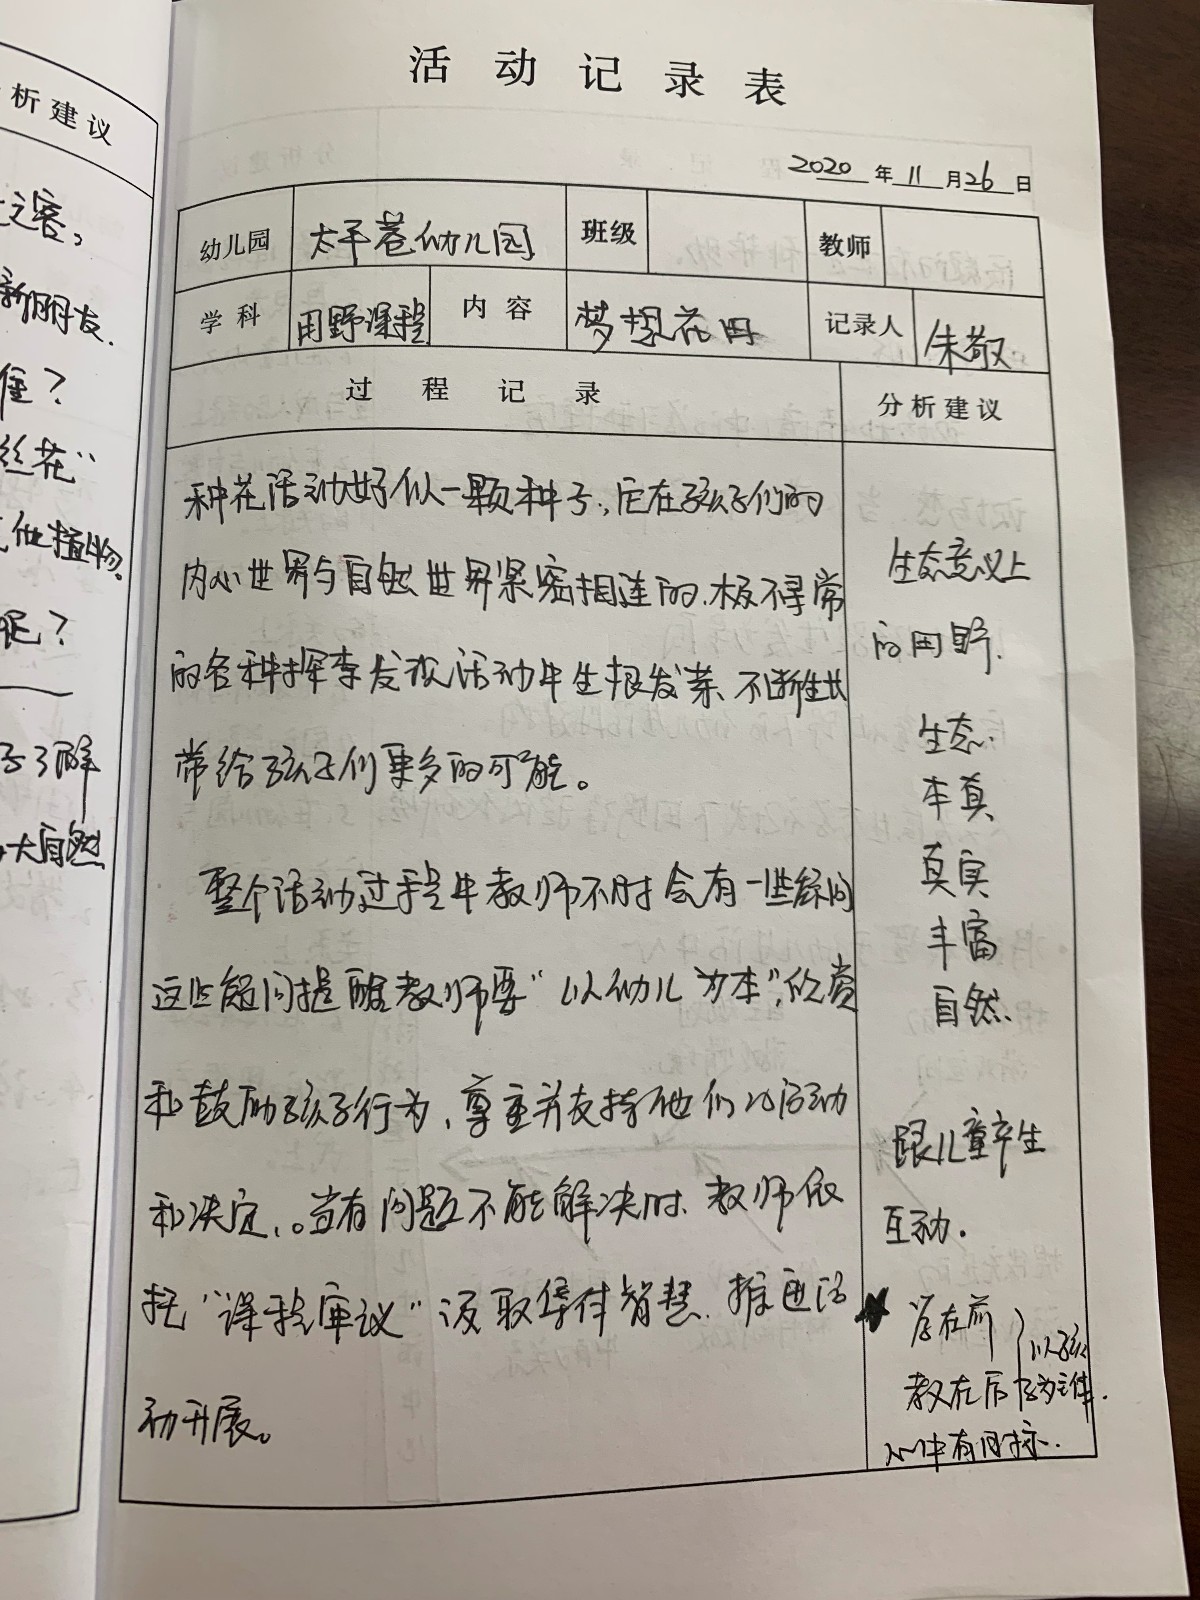 析建议
之客,
新朋友.
谁?
丝花"
他植物.
呢?
子了解
大自然
活动记录表
2020年11月26日
幼儿园 太平巷幼儿园 班级 教师
学科 田野课程 内容 梦想花田 记录人 朱敬
过程记录 分析建议
种花活动好似一颗种子,它在孩子们的
内心世界与自然世界紧密相连的、极寻常
的各种探索发现活动中生根发芽、不断生长
带给孩子们更多的可能。
整个活动过程中教师不时会有一些疑问
这些疑问提醒教师要"以幼儿为本",欣赏
和鼓励孩子行为,尊重并支持他们的活动
和决定。当有问题不能解决时、教师依
托"课程审议"汲取集体智慧.推进活
动开展。
生态意义上
的田野.
生态.
本真
真实
丰富
自然.
跟儿童产生
互动.
★ 学在前
教在后 以孩子为主体.
心中有目标.